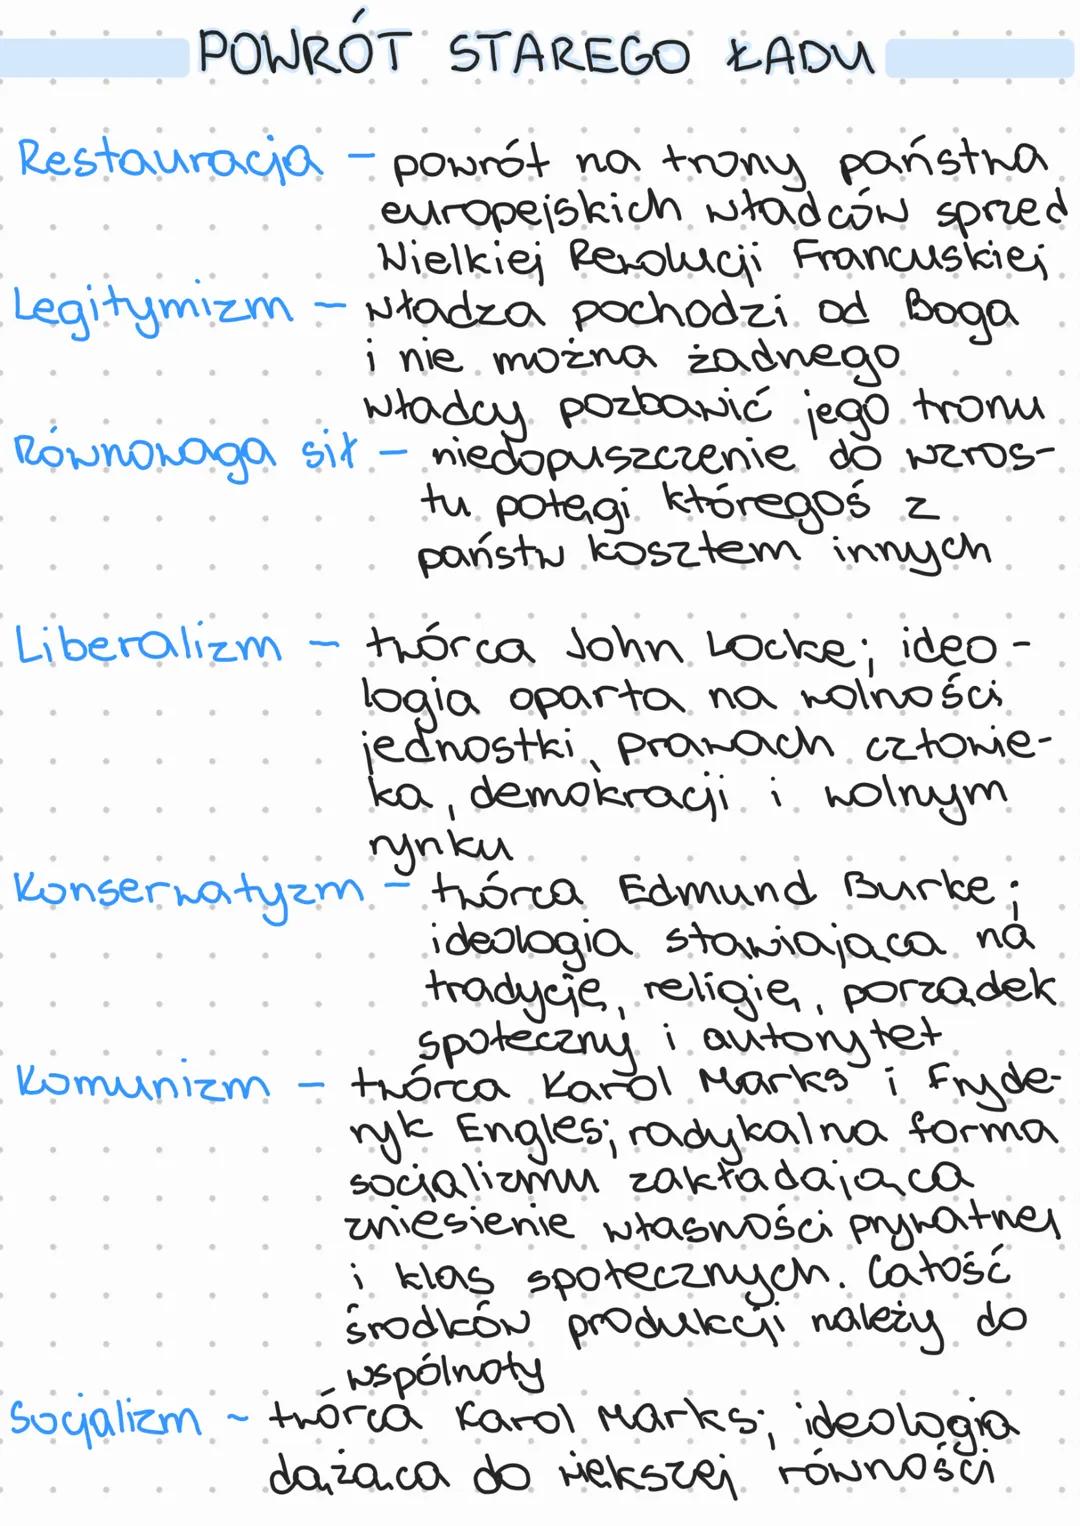 POWRÓT STAREGO ŁADU
Restauracja - powrót na trony państwa
europejskich władców sprzed
Wielkiej Rewolucji Francuskiej
Legitymizm - władza pochodzi od Boga
i nie można żadnego
władcy pozbawić jego tronu
Równowaga sił - niedopuszczenie do wzros-
tu potęgi któregoś z
państw kosztem innych
Liberalizm - twórca John Locke; ideo-
logia oparta na wolności
jednostki, prawach człowie-
ka, demokracji i wolnym
rynku
Konserwatyzm - twórca Edmund Burke;
ideologia stawiająca na
tradycję, religię, porządek
społeczny i autorytet
Komunizm - twórca Karol Marks i Fryde-
ryk Engles; radykalna forma
socjalizmu zakładająca
zniesienie własności prywatnej
i klas społecznych. Całość
środków produkcji należy do
wspólnoty
Socjalizm - twórca Karol Marks; ideologia
dążąca do większej równości